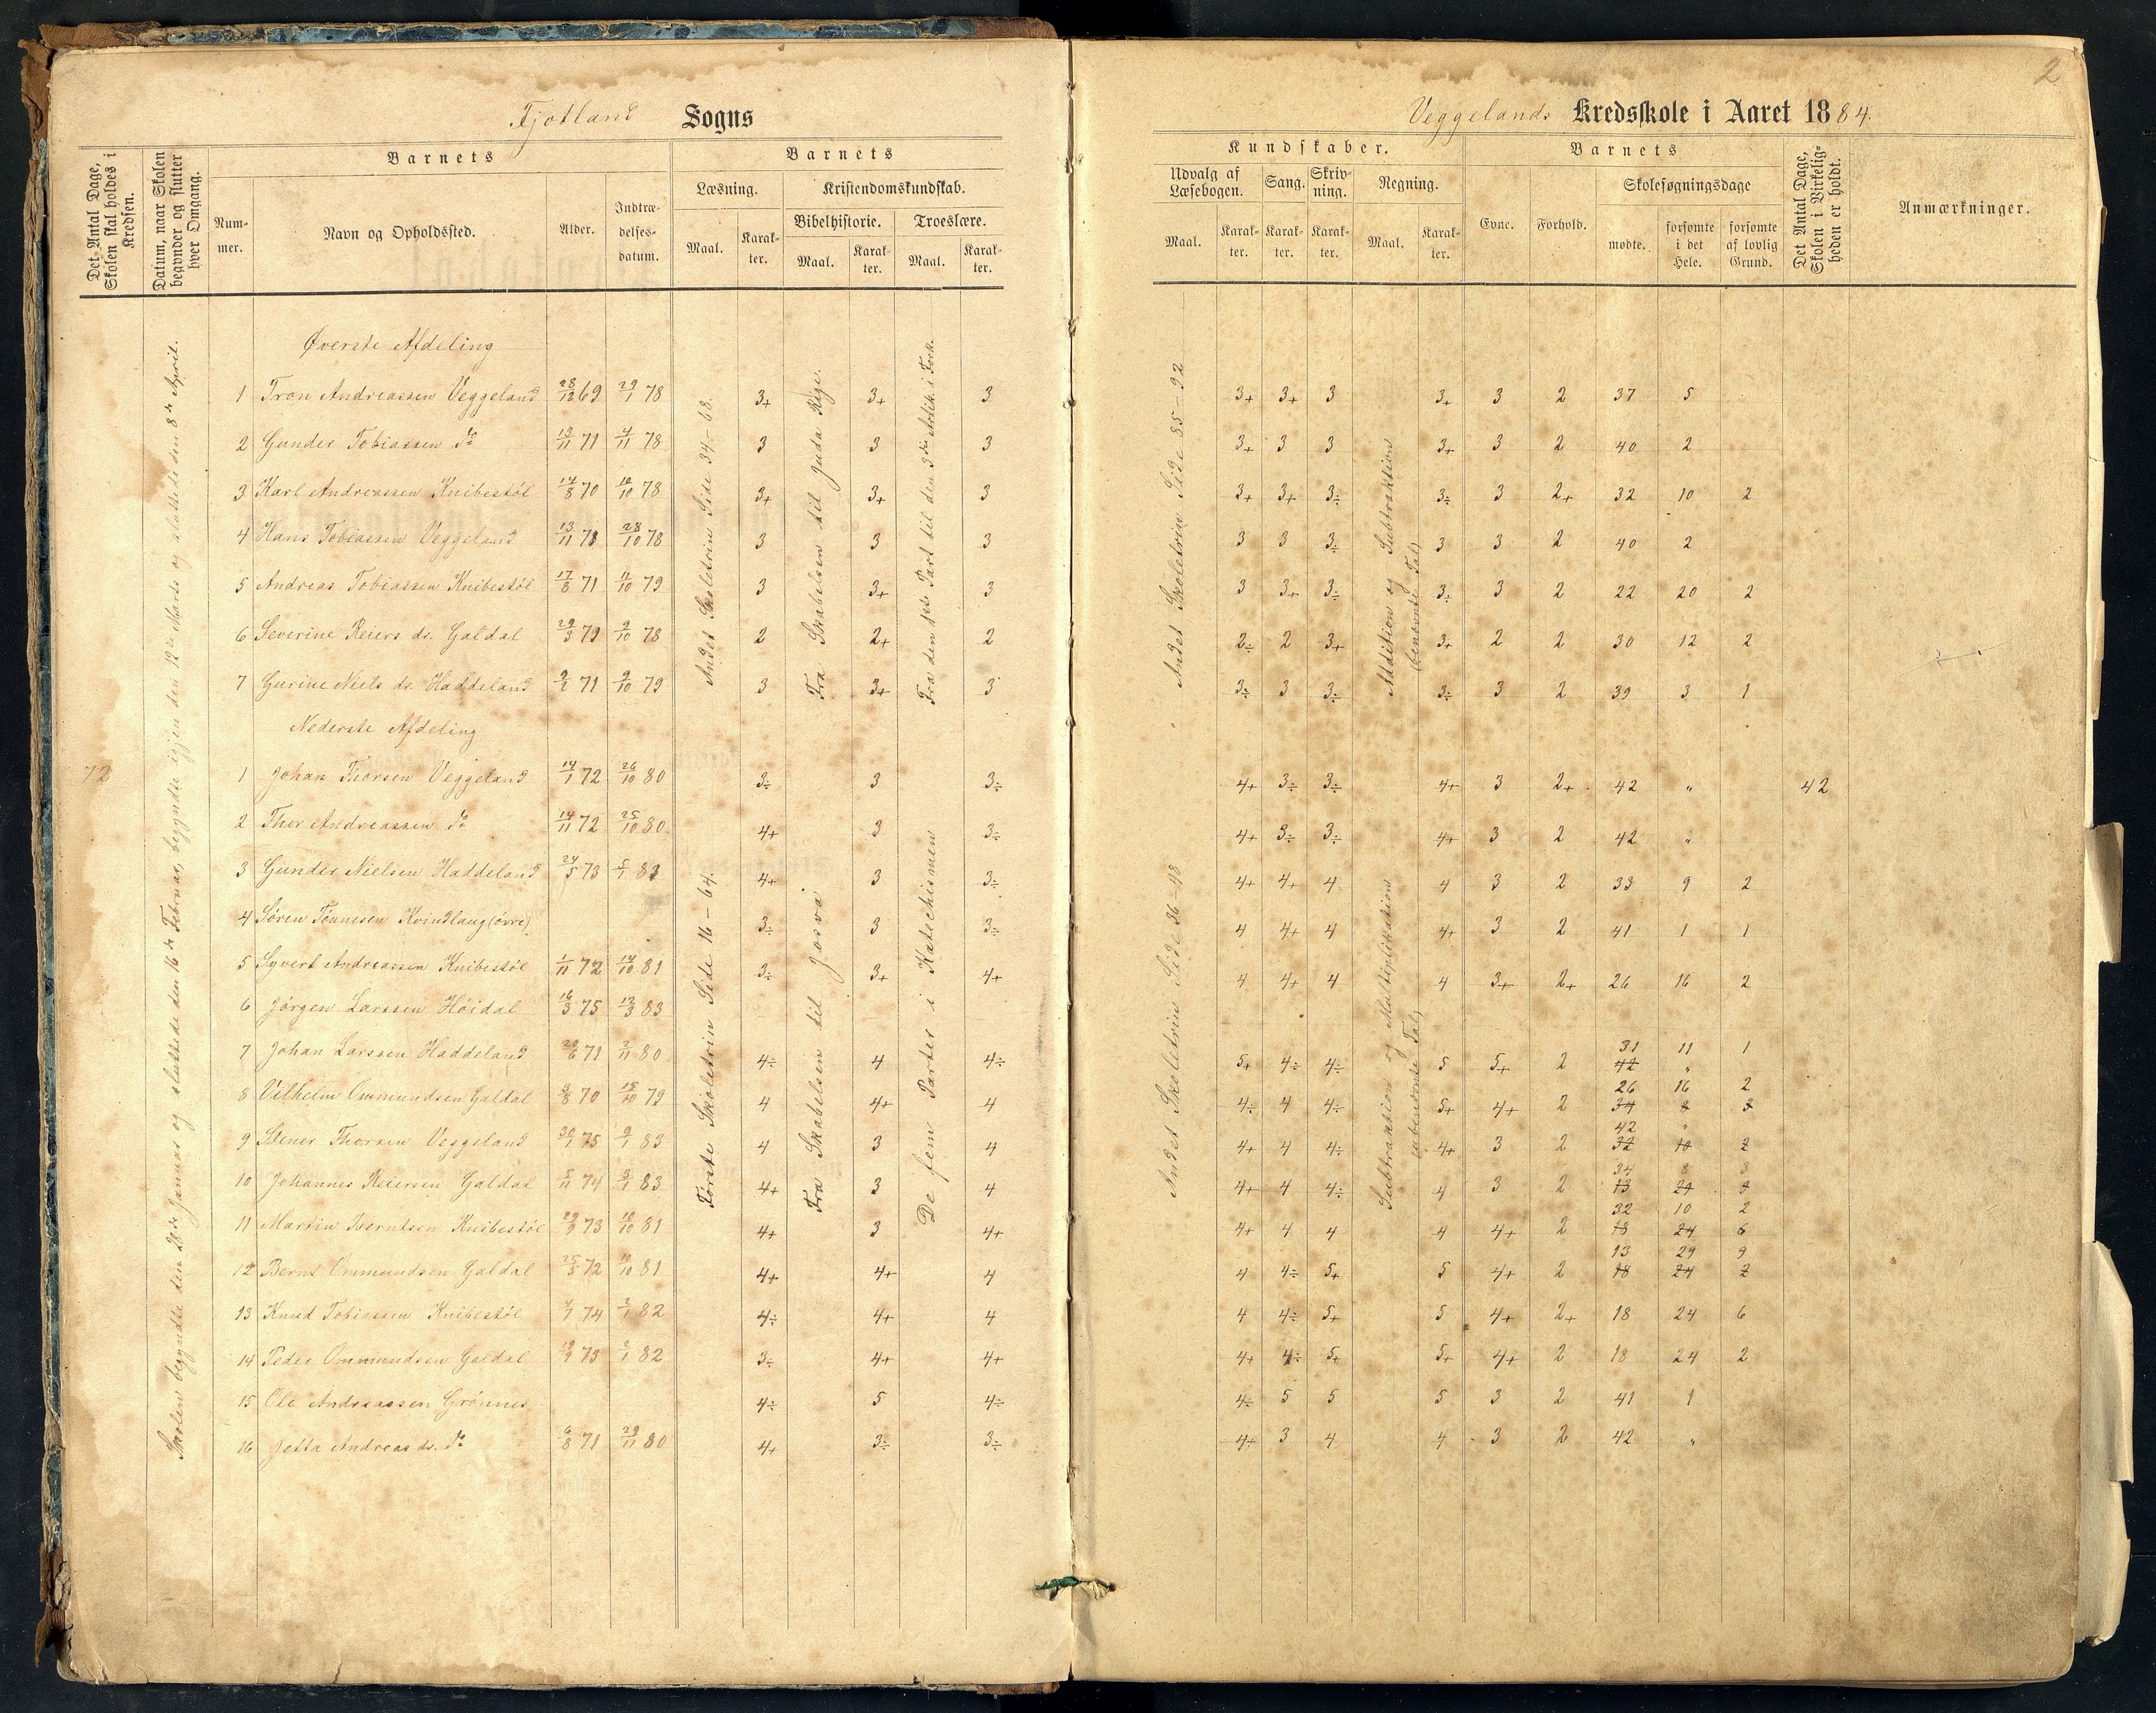 2
Fjotland Sogns
Veggelands Kredsskole i Aaret 1884.
Det Antal Dage, Skolen skal holdes i Kredsen.
Datum, naar Skolen begynder og slutter hver Omgang.
Barnets
Nummer.
Navn og Opholdssted.
Alder.
Indtrædelsesdatum.
Barnets
Læsning.
Maal.
Karakter.
Kristendomskundskab.
Bibelhistorie.
Maal.
Karakter.
Troeslære.
Maal.
Karakter.
Kundskaber.
Udvalg af Læsebogen.
Maal.
Karakter.
Sang.
Karakter.
Skrivning.
Karakter.
Regning.
Maal.
Karakter.
Barnets
Evne.
Forhold.
Skolesøgningsdage
mødte.
forsømte i det Hele.
forsømte af lovlig Grund.
Det Antal Dage, Skolen i Virkeligheden er holdt.
Anmærkninger.
72
Skolen begyndte den 28de Januar og sluttede den 16de Februar, begyndte igjen den 12te Marts og sluttede den 8de April.
Andet Skoletrin Side 34-68.
Fra Skabelsen til Juda Rige.
Fra den 1ste Part til den 3die Artik. i Fork.
Andet Skoletrin Side 85-92
Addition og Subtraktion (benævnte Tal)
Øverste Afdeling
1 Tron Andreassen Veggeland 28/12 69 29/1 78 3+ 3+ 3 3+ 3+ 3 3+ 3 2 37 5
2 Gunder Tobiassen do 13/11 71 4/11 78 3 3 3 3+ 3 3 3+ 3 2 40 2
3 Karl Andreassen Knibestøl 14/8 70 10/10 78 3+ 3+ 3 3+ 3+ 3÷ 3÷ 3 2+ 32 10 2
4 Hans Tobiassen Veggeland 13/11 71 28/10 78 3 3 3 3 3 3÷ 3 3 2 40 2
5 Andreas Tobiassen Knibestøl 17/8 71 11/10 79 3 3+ 3 3 3+ 3÷ 3÷ 3 2 22 20 2
6 Severine Reiers dr. Galdal 29/3 79 9/10 78 2 2+ 2 2÷ 2 3+ 3+ 2 2 30 12 2
7 Gurine Niels dr. Haddeland 9/2 71 9/10 79 3 3+ 3 3÷ 3 3÷ 3÷ 3 2 39 3 1
Nederste Afdeling
Første Skoletrin Side 16-64.
Fra Skabelsen til Josva
De fem Parter i Katechismen
Andet Skoletrin Side 36-48
Subtraktion og Multiplikation (ubenævnte Tal)
1 Johan Thorsen Veggeland 14/1 72 26/10 80 3÷ 3 3÷ 4+ 3÷ 3÷ 4+ 3 2+ 42 " 42
2 Thor Andreassen do 14/11 72 25/10 80 4+ 3 3÷ 4+ 3÷ 3÷ 4+ 3 2 42 "
3 Gunder Nielsen Haddeland 24/5 73 5/1 83 4+ 3 3÷ 4+ 4+ 4 4 3 2 33 9 2
4 Søren Tønnesen Kvindlaug (øvre) 3÷ 3 3÷ 4 4+ 4 4+ 3 2 41 1 1
5 Syvert Andreassen Knibestøl 1/11 72 14/10 81 3÷ 3+ 4+ 4 4+ 4 4 3+ 2+ 26 16 2
6 Jørgen Larssen Høidal 16/3 75 13/3 83
31 11 1
7 Johan Larssen Haddeland 20/6 71 2/11 80 4÷ 4 4÷ 5+ 4÷ 4÷ 5 5+ 2 42 "
26 16 2
8 Vilhelm Ommundsen Galdal 3/8 70 15/10 79 4 4+ 4 4÷ 4 4÷ 5+ 4+ 2 34 8 3
42 "
9 Stener Thorsen Veggeland 30/1 75 9/1 83 4 3 4 4+ 4 4÷ 4+ 3 2 32 10 2
34 8 3
10 Johannes Reiersen Galdal 5/11 74 3/1 83 4+ 3 4 4+ 4 4÷ 4 3 2 13 29 9
32 10 2
11 Martin Berntsen Knibestøl 29/9 73 10/10 81 4+ 3 4+ 4+ 4 4 4 4+ 2 18 24 6
13 29 9
12 Bernt Ommundsen Galdal 25/5 72 10/10 81 4+ 4+ 4 4 4÷ 5+ 5 4+ 2 18 24 2
13 Knud Tobiassen Knibestøl 74 2/1 82 4÷ 4+ 4 4 4÷ 5+ 5 4+ 2+ 18 24 6
14 Peder Ommundsen Galdal 73 2/1 82 3÷ 4+ 4+ 4+ 4÷ 5+ 5+ 4+ 2 18 24 2
15 Ole Andreassen Grønnes 4÷ 5 4÷ 4÷ 5 5 5 3 2 41 1
16 Jetta Andreas dr. do 6/8 71 29/11 80 4+ 3÷ 3÷ 4+ 3 4 4 3 2 42 "